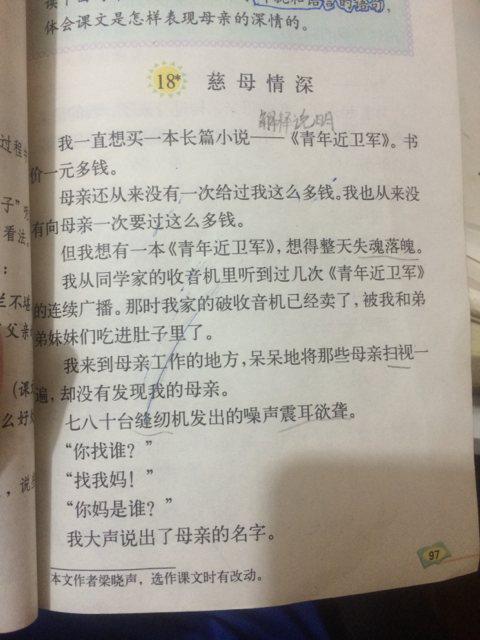 体会课文是怎样表现母亲的深情的。
18* 慈母情深
解释说明
我一直想买一本长篇小说——《青年近卫军》。书
价一元多钱。
母亲还从来没有一次给过我这么多钱。我也从来没
有向母亲一次要过这么多钱。
但我想有一本《青年近卫军》，想得整天失魂落魄。
我从同学家的收音机里听到过几次《青年近卫军》
的连续广播。那时我家的破收音机已经卖了，被我和弟
弟妹妹们吃进肚子里了。
我来到母亲工作的地方，呆呆地将那些母亲扫视一
遍，却没有发现我的母亲。
七八十台缝纫机发出的噪声震耳欲聋。
“你找谁？”
“找我妈！”
“你妈是谁？”
我大声说出了母亲的名字。
本文作者梁晓声，选作课文时有改动。
97
过程
子”
看法
：
父亲
（课
么好
，说